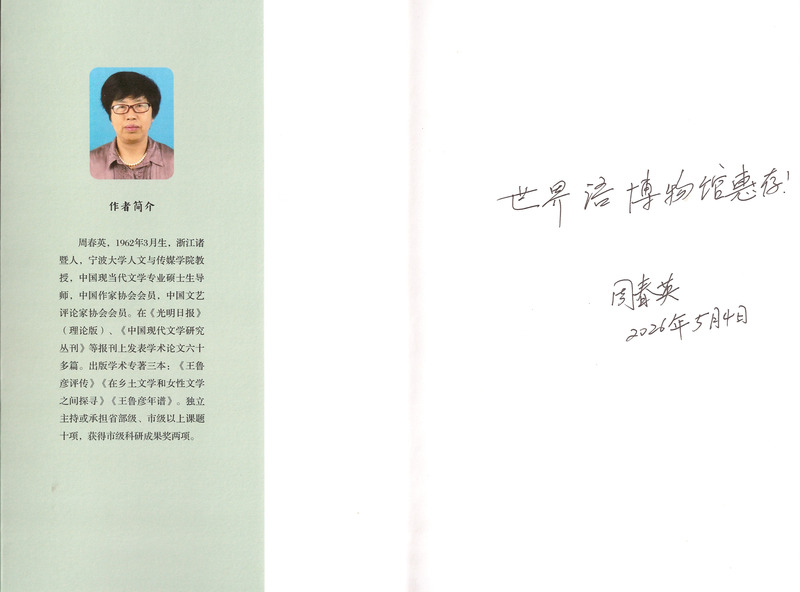 作者简介
周春英，1962年3月生，浙江诸
暨人，宁波大学人文与传媒学院教
授，中国现当代文学专业硕士生导
师，中国作家协会会员，中国文艺
评论家协会会员。在《光明日报》
（理论版）、《中国现代文学研究
丛刊》等报刊上发表学术论文六十
多篇。出版学术专著三本：《王鲁
彦评传》《在乡土文学和女性文学
之间探寻》《王鲁彦年谱》。独立
主持或承担省部级、市级以上课题
十项，获得市级科研成果奖两项。
世界语博物馆惠存！
周春英
2026年5月4日